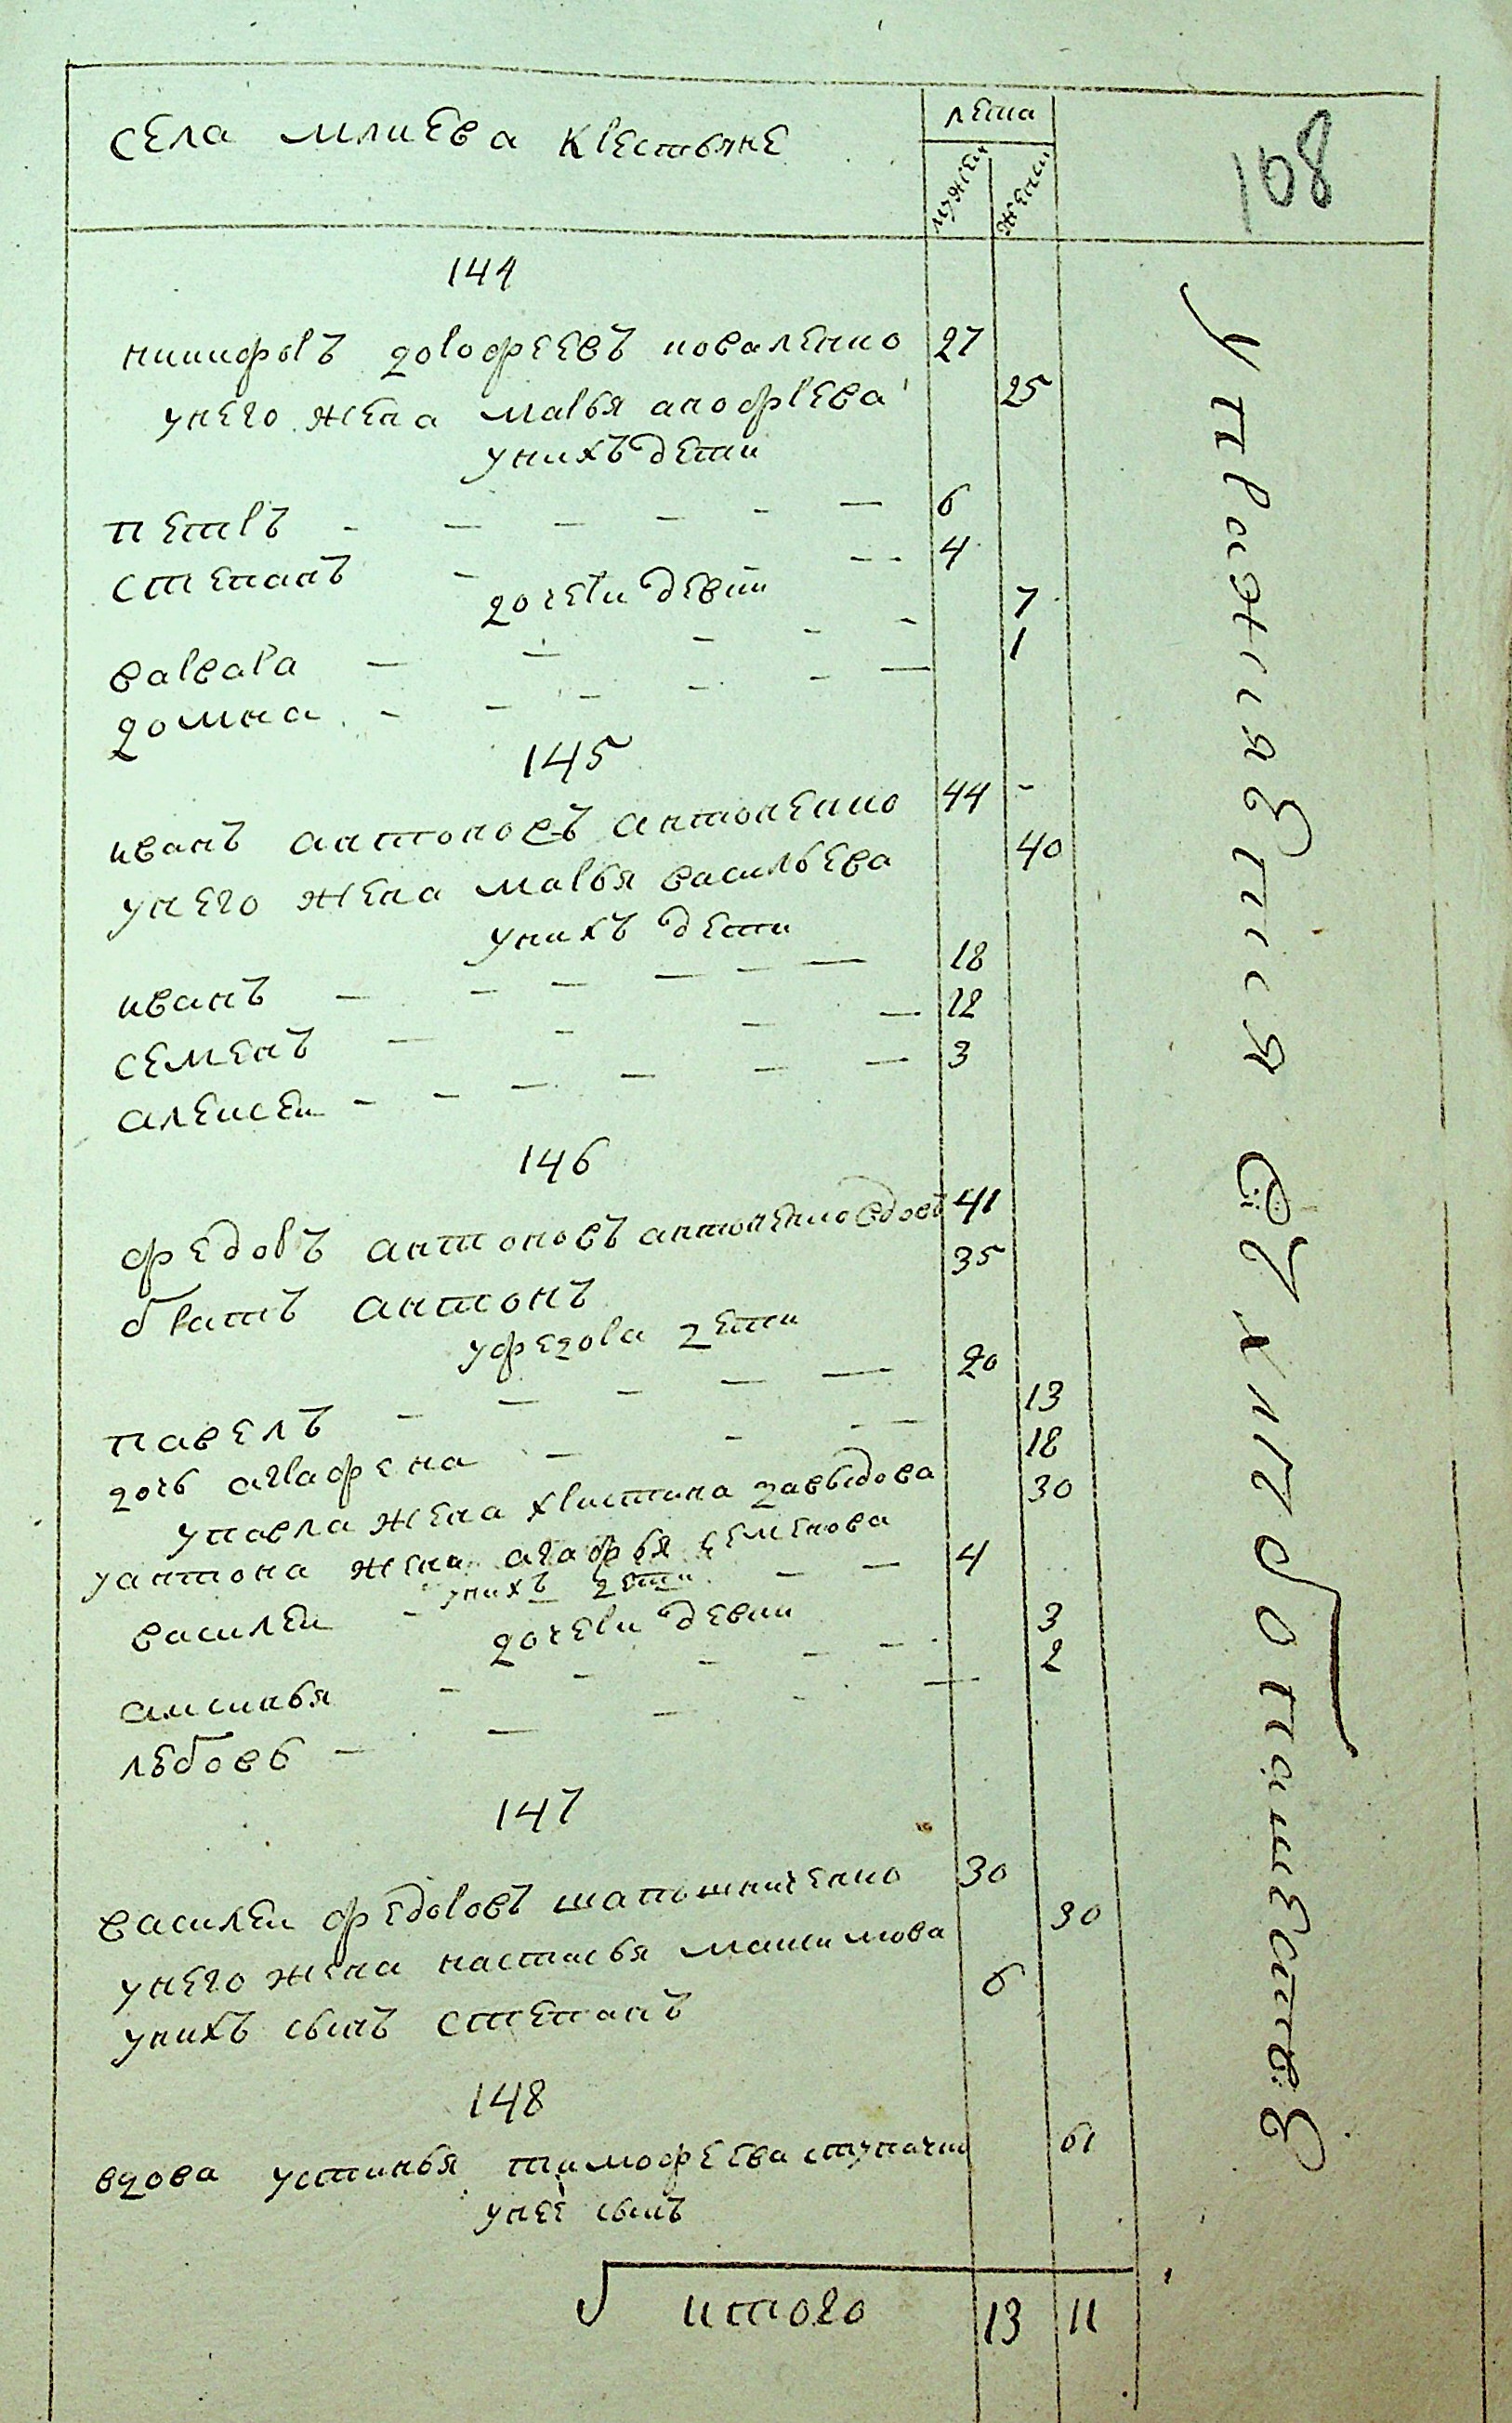 села млиева крестьяне
лета
мужеи
женщ
108
144
никифоръ дорофеевъ коваленко 27
унего жена марья анофрѣева 25
унихъ дети
петръ 6
степанъ 4
дочери девки
варвара 7
домна 1
145
иванъ антоновъ антоненко 44
унего жена марья васильева 40
унихъ дети
иванъ 18
семенъ 12
алексеи 3
146
федоръ антоновъ антоненко вдовъ 41
братъ антонъ 35
уфедора дети
павелъ 20
дочь аграфена 13
упавла жена христина давыдова 18
уантона жена агафья семенова 30
унихъ дети
василеи 4
дочери девки
аксинья 3
любовь 2
147
василеи федоровъ шапошниченко 30
унего жена настасья максимова 30
унихъ сынъ степанъ 6
148
вдова устинья тимофеева 61
унеё сынъ
итого 13 11